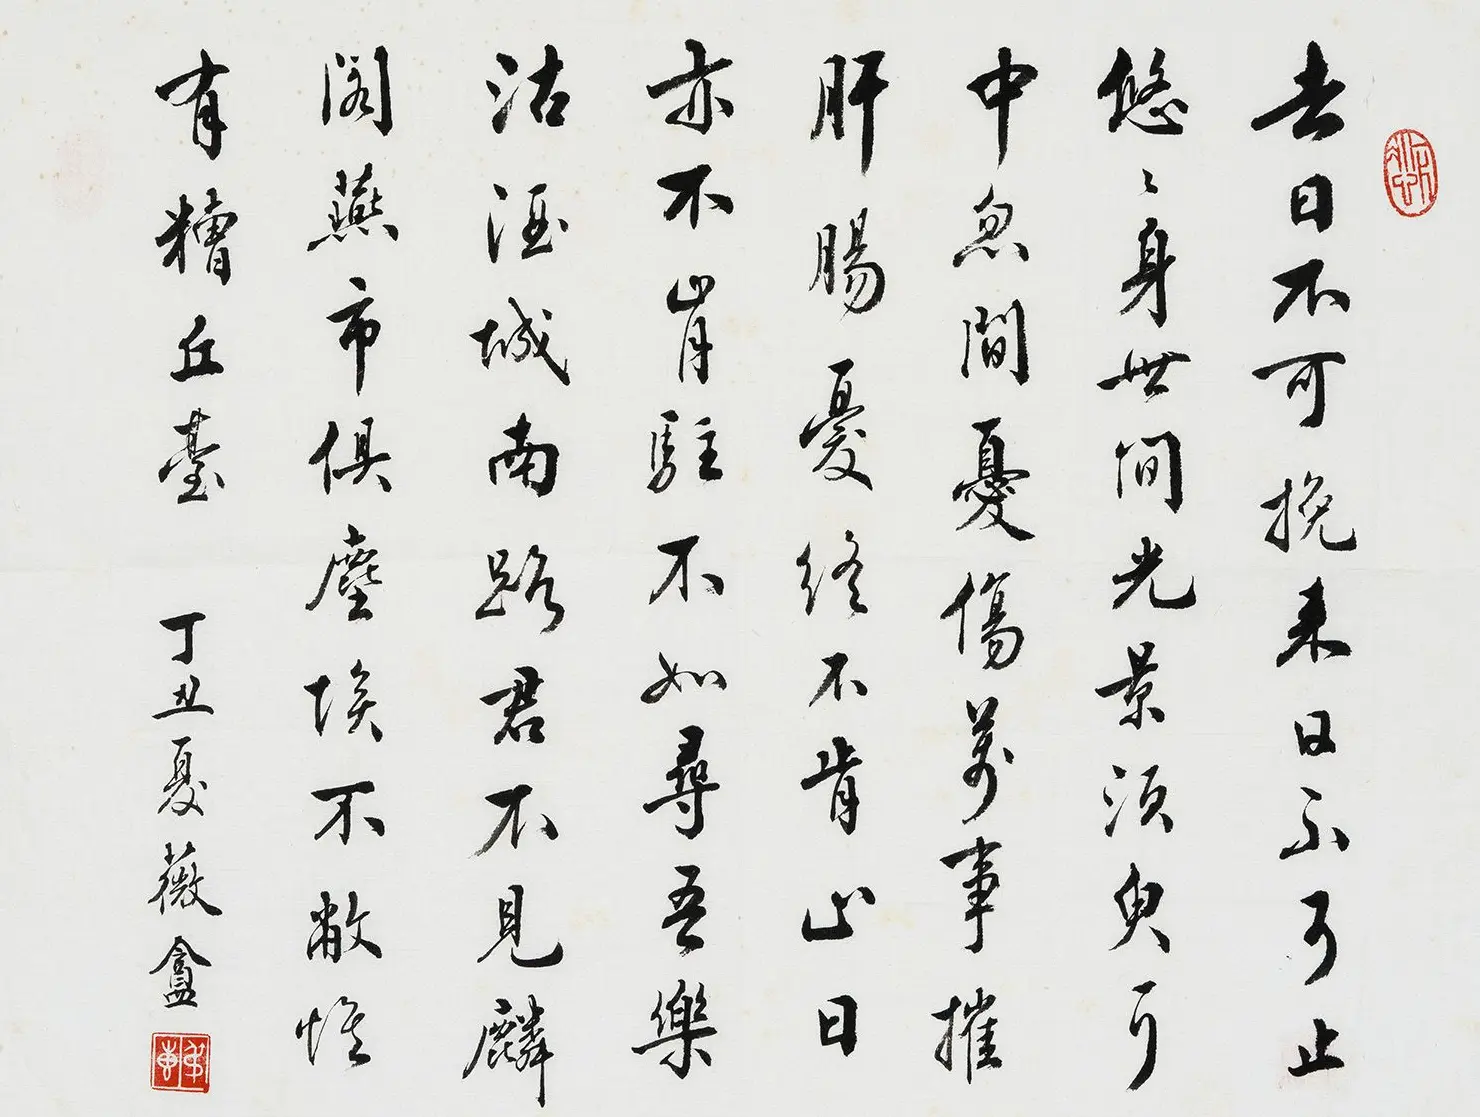 去日不可挽来日不可止
悠〻身世間光景須臾耳
中忽間憂傷萬事摧
肝腸憂終不肯止日
亦不肯駐不如尋吾樂
沽酒城南路君不見麟
閣燕市俱塵埃不敝惟
有糟丘臺 丁丑夏薇盦